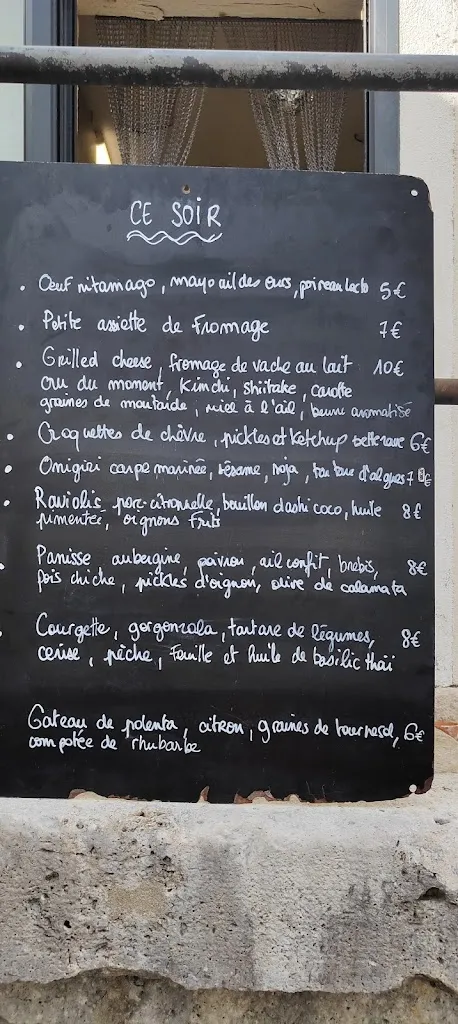 CE SOIR
• Oeuf nitamago, mayo ail des ours, poireau lacto 5€
• Petite assiette de Fromage 7€
• Grilled cheese, fromage de vache au lait 10€
cru du moment, Kimchi, Shiitake, carotte
graines de moutarde, miel à l'ail, beurre aromatisé
• Croquettes de chèvre, pickles et Ketchup betterave 6€
• Onigiri carpe marinée, sésame, soja, tartare d'algues 7€
• Raviolis porc-citronnelle, bouillon dashi coco, huile 8€
pimentée, oignons frits
Panisse, aubergine, poivron, ail confit, brebis, 8€
pois chiche, pickles d'oignon, olive de calamata
Courgette, gorgonzola, tartare de légumes, 8€
cerise, pêche, Feuille et huile de basilic thaï
Gateau de polenta, citron, graines de tournesol, 6€
compotée de rhubarbe